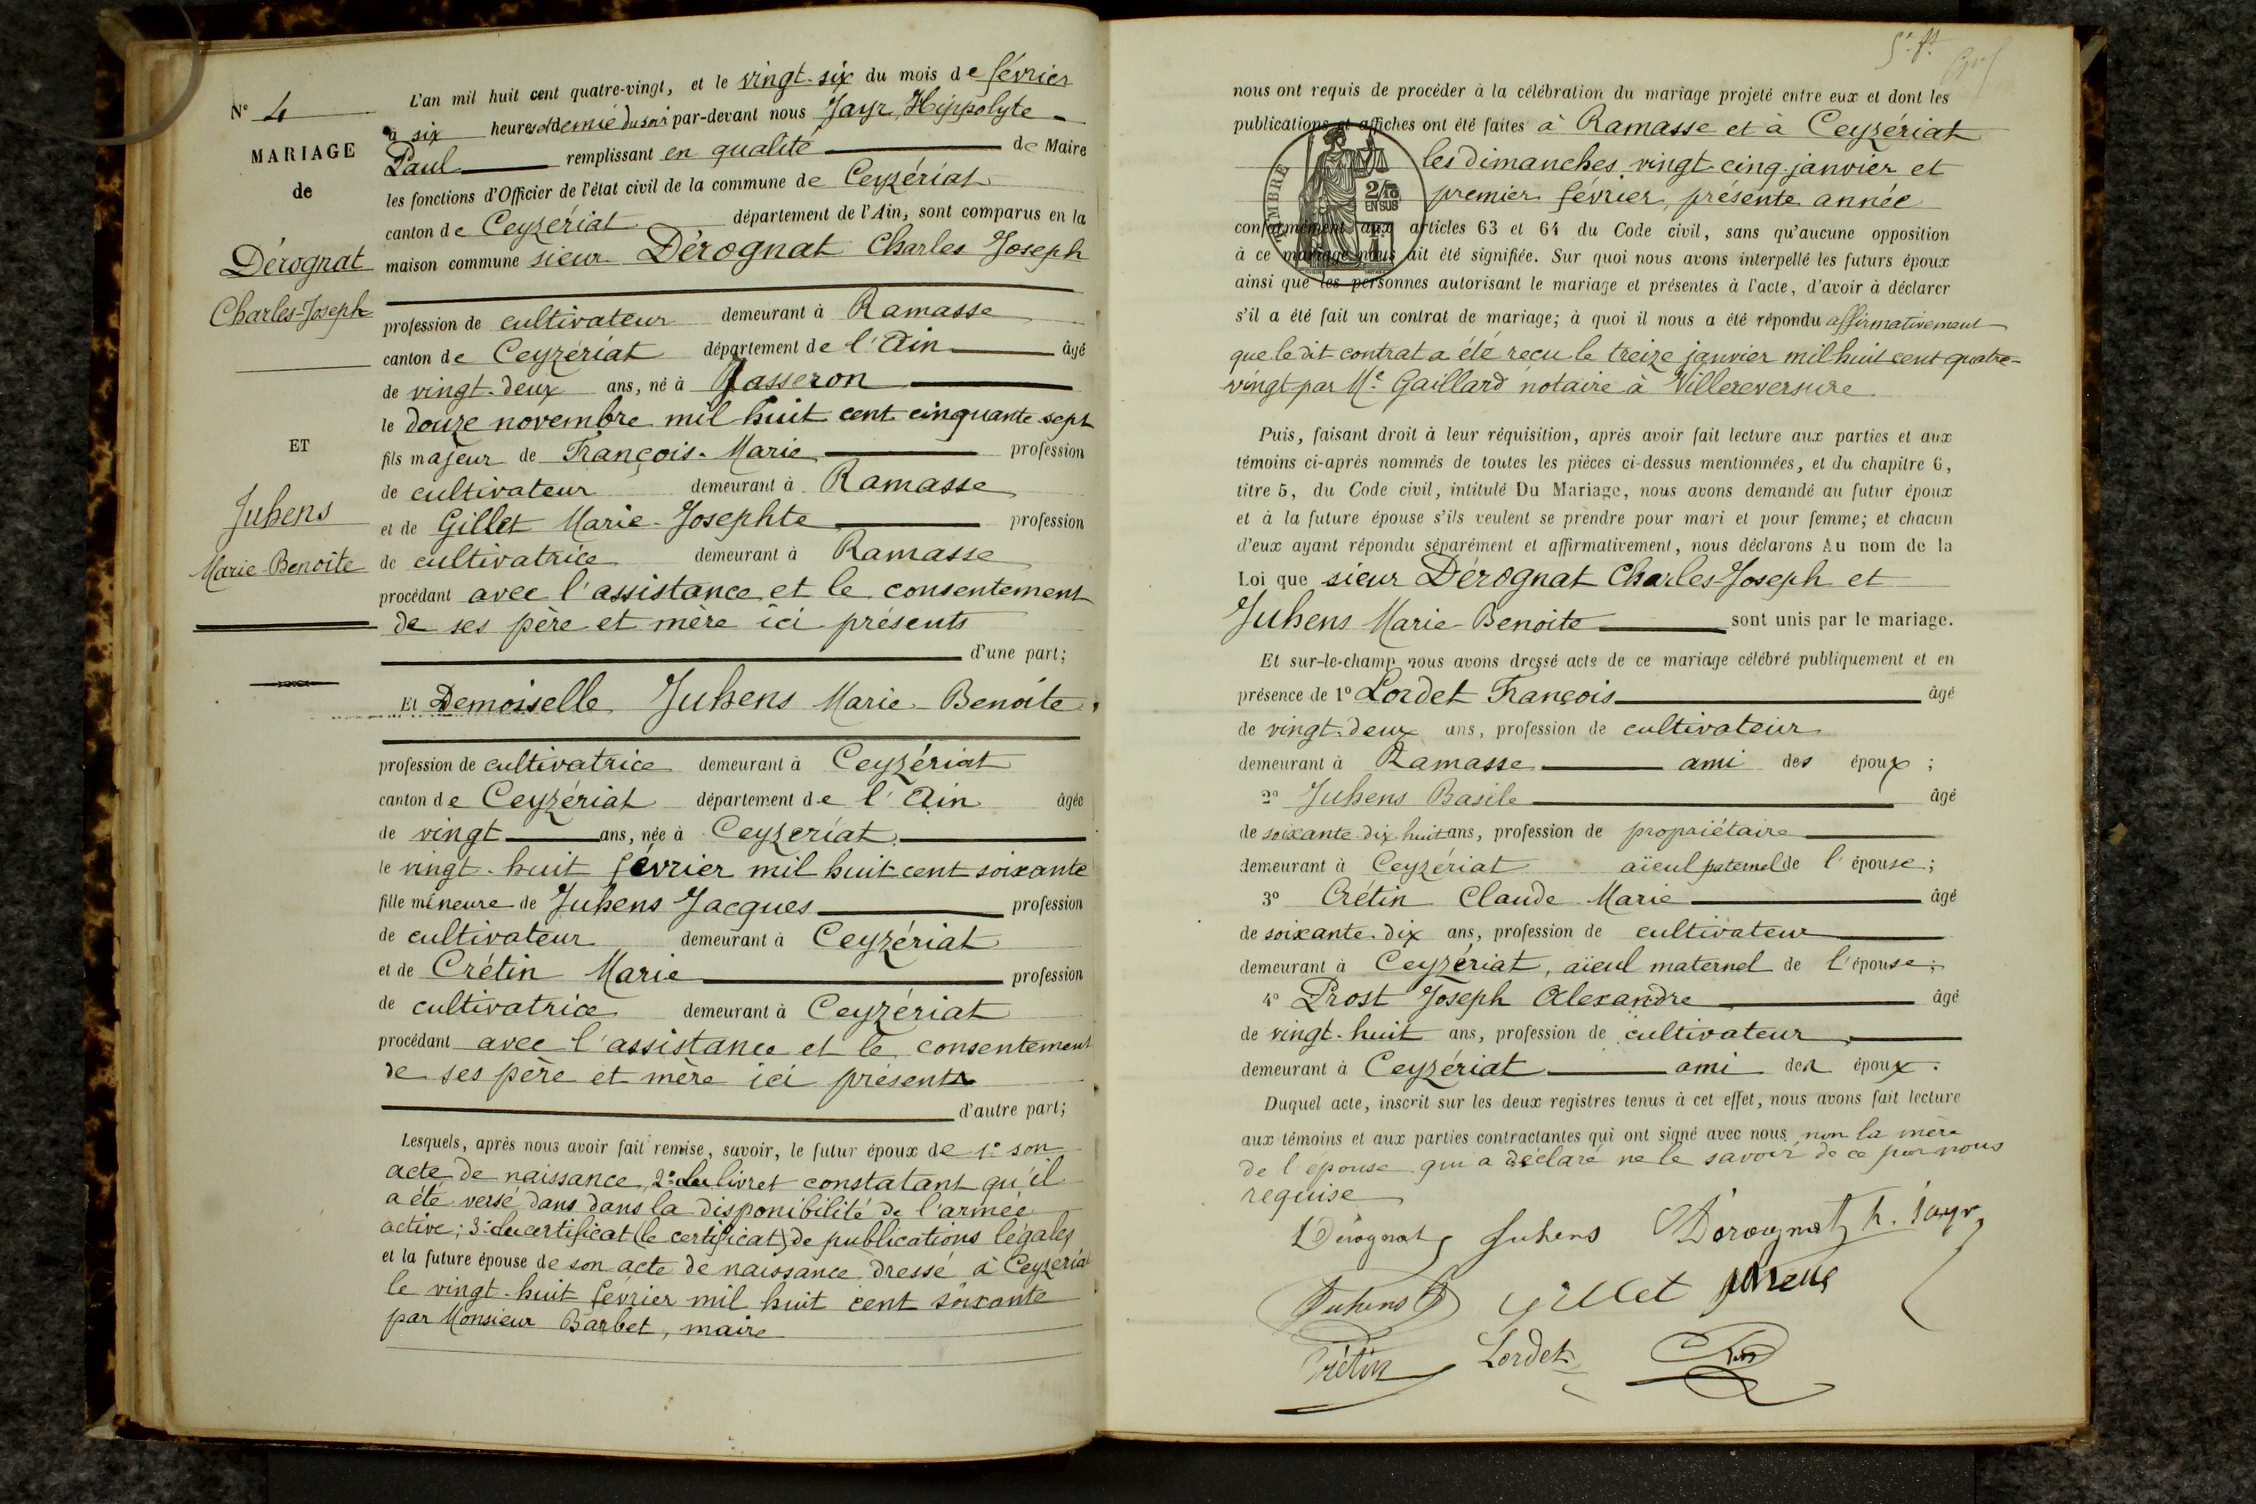 N° 4
MARIAGE
de
Dérognat
Charles-Joseph
ET
Juhens
Marie-Benoite
L'an mil huit cent quatre-vingt, et le vingt-six du mois de février
à six heures et demie du soir par-devant nous Jayr, Hippolyte
Paul remplissant en qualité de Maire
les fonctions d'Officier de l'état civil de la commune de Ceyzériat
canton de Ceyzériat département de l'Ain, sont comparus en la
maison commune sieur Dérognat Charles Joseph
profession de cultivateur demeurant à Ramasse
canton de Ceyzériat département de l'Ain âgé
de vingt-deux ans, né à Jasseron
le douze novembre mil huit cent cinquante sept
fils majeur de François-Marie profession
de cultivateur demeurant à Ramasse
et de Gillet Marie-Josephte profession
de cultivatrice demeurant à Ramasse
procédant avec l'assistance et le consentement
de ses père et mère ici présents
d'une part;
Et Demoiselle Juhens Marie-Benoite,
profession de cultivatrice demeurant à Ceyzériat
canton de Ceyzériat département de l'Ain âgée
de vingt ans, née à Ceyzeriat
le vingt-huit février mil huit cent soixante
fille mineure de Juhens Jacques profession
de cultivateur demeurant à Ceyzériat
et de Crétin Marie profession
de cultivatrice demeurant à Ceyzériat
procédant avec l'assistance et le consentement
de ses père et mère ici présents
d'autre part;
Lesquels, après nous avoir fait remise, savoir, le futur époux de 1° son
acte de naissance, 2° du livret constatant qu'il
a été versé dans dans la disponibilité de l'armée
active; 3° du certificat (le certificat) de publications légales
et la future épouse de son acte de naissance dressé à Ceyzériat
le vingt-huit février mil huit cent soixante
par Monsieur Barbet, maire
nous ont requis de procéder à la célébration du mariage projeté entre eux et dont les
publications et affiches ont été faites à Ramasse et à Ceyzériat
les dimanches vingt-cinq janvier et
premier février, présente année
TIMBRE
2/10
EN SUS
conformément aux articles 63 et 64 du Code civil, sans qu'aucune opposition
à ce mariage nous ait été signifiée. Sur quoi nous avons interpellé les futurs époux
ainsi que les personnes autorisant le mariage et présentes à l'acte, d'avoir à déclarer
s'il a été fait un contrat de mariage; à quoi il nous a été répondu affirmativement
que le dit contrat a été reçu le treize janvier mil huit cent quatre-
vingt par Me Gaillard notaire à Villereversure
Puis, faisant droit à leur réquisition, après avoir fait lecture aux parties et aux
témoins ci-après nommés de toutes les pièces ci-dessus mentionnées, et du chapitre 6,
titre 5, du Code civil, intitulé Du Mariage, nous avons demandé au futur époux
et à la future épouse s'ils veulent se prendre pour mari et pour femme; et chacun
d'eux ayant répondu séparément et affirmativement, nous déclarons Au nom de la
Loi que sieur Dérognat Charles-Joseph et
Juhens Marie-Benoite sont unis par le mariage.
Et sur-le-champ nous avons dressé acte de ce mariage célébré publiquement et en
présence de 1° Lordet François âgé
de vingt-deux ans, profession de cultivateur
demeurant à Ramasse ami des époux;
2° Juhens Basile âgé
de soixante-dix huit ans, profession de propriétaire
demeurant à Ceyzériat aïeul paternel de l'épouse;
3° Crétin Claude-Marie âgé
de soixante-dix ans, profession de cultivateur
demeurant à Ceyzériat, aïeul maternel de l'épouse;
4° Prost Joseph Alexandre âgé
de vingt-huit ans, profession de cultivateur
demeurant à Ceyzériat ami des époux.
Duquel acte, inscrit sur les deux registres tenus à cet effet, nous avons fait lecture
aux témoins et aux parties contractantes qui ont signé avec nous, non la mère
de l'épouse qui a déclaré ne le savoir de ce par nous
requise
Dérognat Juhens Dérognat h. Jayr
Juhens Gillet
Crétin Lordet